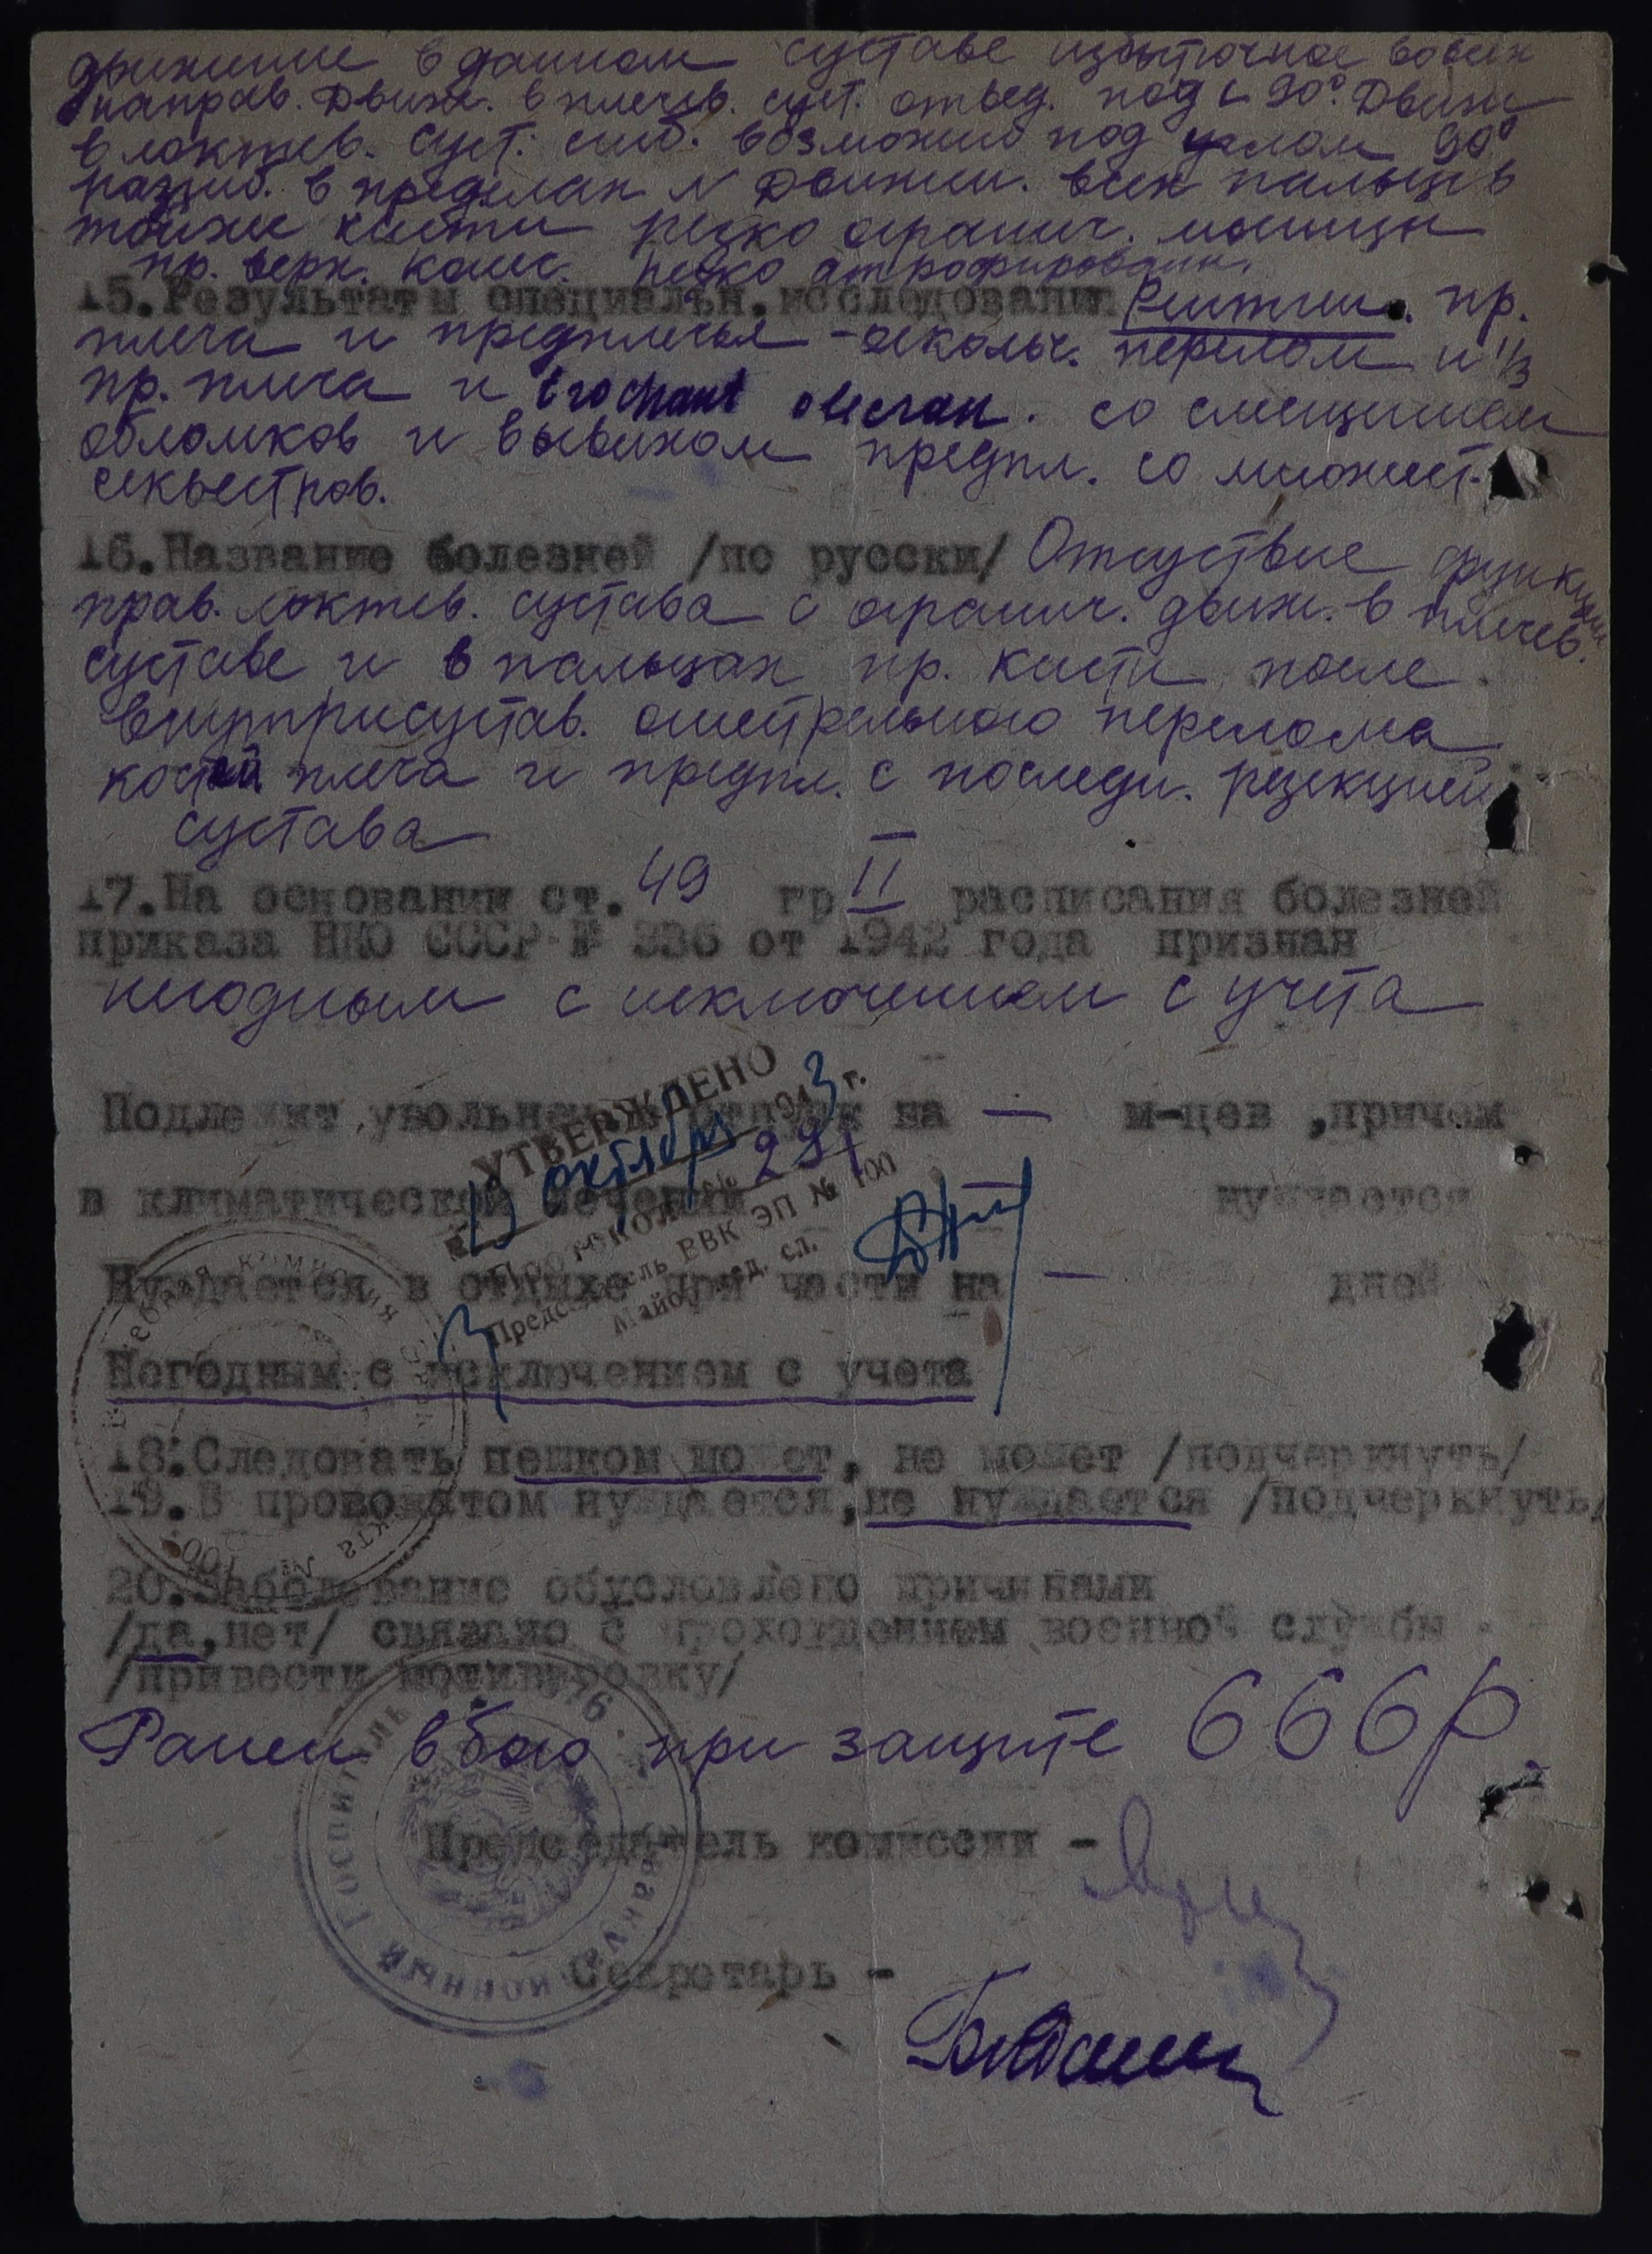 движение в данном суставе избыточное во всех
направ. Движ. в плечев. суст. отвед. под ∠ 90°. Движ
в локтев. суст. сгиб. возможно под углом 90°
разгиб. в пределах N Движен. всех пальцев
тойже кисти резко огранич. мышцы
пр. верх. конеч. резко атрофированы.
15. Результаты специальн. исследования Рентген. пр.
плеча и предплечья – оскольч. перелом н 1/3
пр. плеча и trochant olecran. со смещением
обломков и вывихом предпл. со множест.
секвестров.
16. Название болезней /по русски/ Отсутствие функции
прав. локтев. сустава с огранич. движ. в плечев.
суставе и в пальцах пр. кисти после
внутрисустав. огнестрельного перелома
костей плеча и предпл. с последн. резекцией
сустава
17. На основании ст. 49 гр II расписания болезней
приказа НКО СССР № 336 от 1942 года признан
негодным с исключением с учета
УТВЕРЖДЕНО
октября 1943 г.
Протокол № 291
Председатель ВВК ЭП № 100
Майор мед. сл.
Подлежит увольнению в отпуск на — м-цев, причем
в климатическом лечении — нуждается
Нуждается в отдыхе при части на — дней
Негодным с исключением с учета
18. Следовать пешком может, не может /подчеркнуть/
19. В провожатом нуждается, не нуждается /подчеркнуть/
20. Заболевание обусловлено причинами
/да, нет/ связано с прохождением военной службы
/привести мотивировку/
Ранен в бою при защите СССР.
Председатель комиссии -
Секретарь -
Эвакуационный Госпиталь